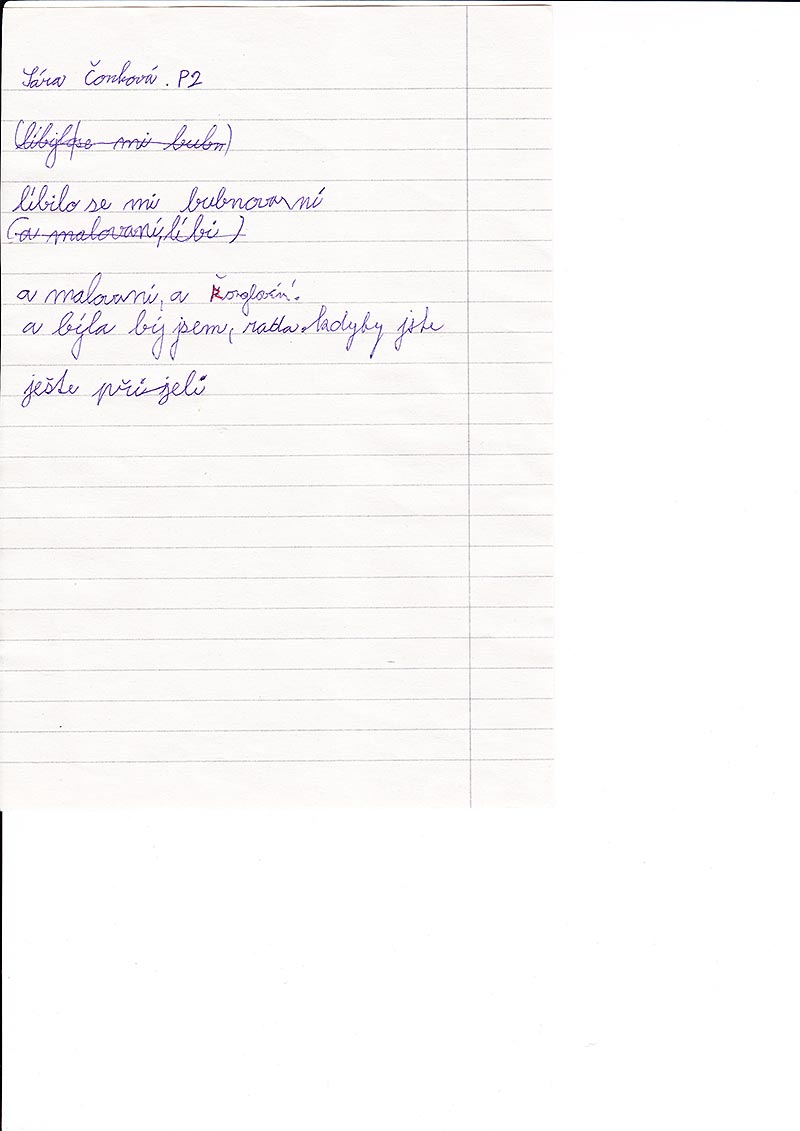 Sára Čonková. P2
(líbyl se mi bubn)
líbilo se mi bubnovaní
(a malovaný, líbi )
a malovní, a
a býla bý jsem, rada. kdyby jste
ješte přijeli